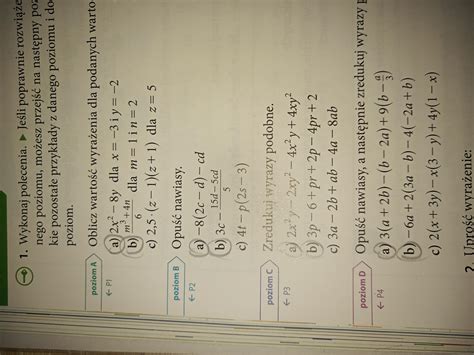 1. Wykonaj polecenia. ▸ Jeśli poprawnie rozwiąże
nego poziomu, możesz przejść na następny poz
kie pozostałe przykłady z danego poziomu i do
poziom.
poziom A
Oblicz wartość wyrażenia dla podanych warto
← P1
a) 2x² − 8y dla x = −3 i y = −2
b) \frac{m³ + 4n}{6} dla m = 1 i n = 2
c) 2,5 · (z − 1)(z + 1) dla z = 5
poziom B
Opuść nawiasy.
← P2
a) −8(2c − d) − cd
b) 3c − \frac{15d − 5cd}{5}
c) 4t − p(2s − 3)
poziom C
Zredukuj wyrazy podobne.
← P3
a) 2x²y − 2xy² − 4x²y + 4xy²
b) 3p − 6 + pr + 2p − 4pr + 2
c) 3a − 2b + ab − 4a − 8ab
poziom D
Opuść nawiasy, a następnie zredukuj wyrazy p
← P4
a) 3(a + 2b) − (b − 2a) + 9(b − \frac{a}{3})
b) −6a + 2(3a − b) − 4(−2a + b)
c) 2(x + 3y) − x(3 − y) + 4y(1 − x)
2. Uprość wyrażenie: